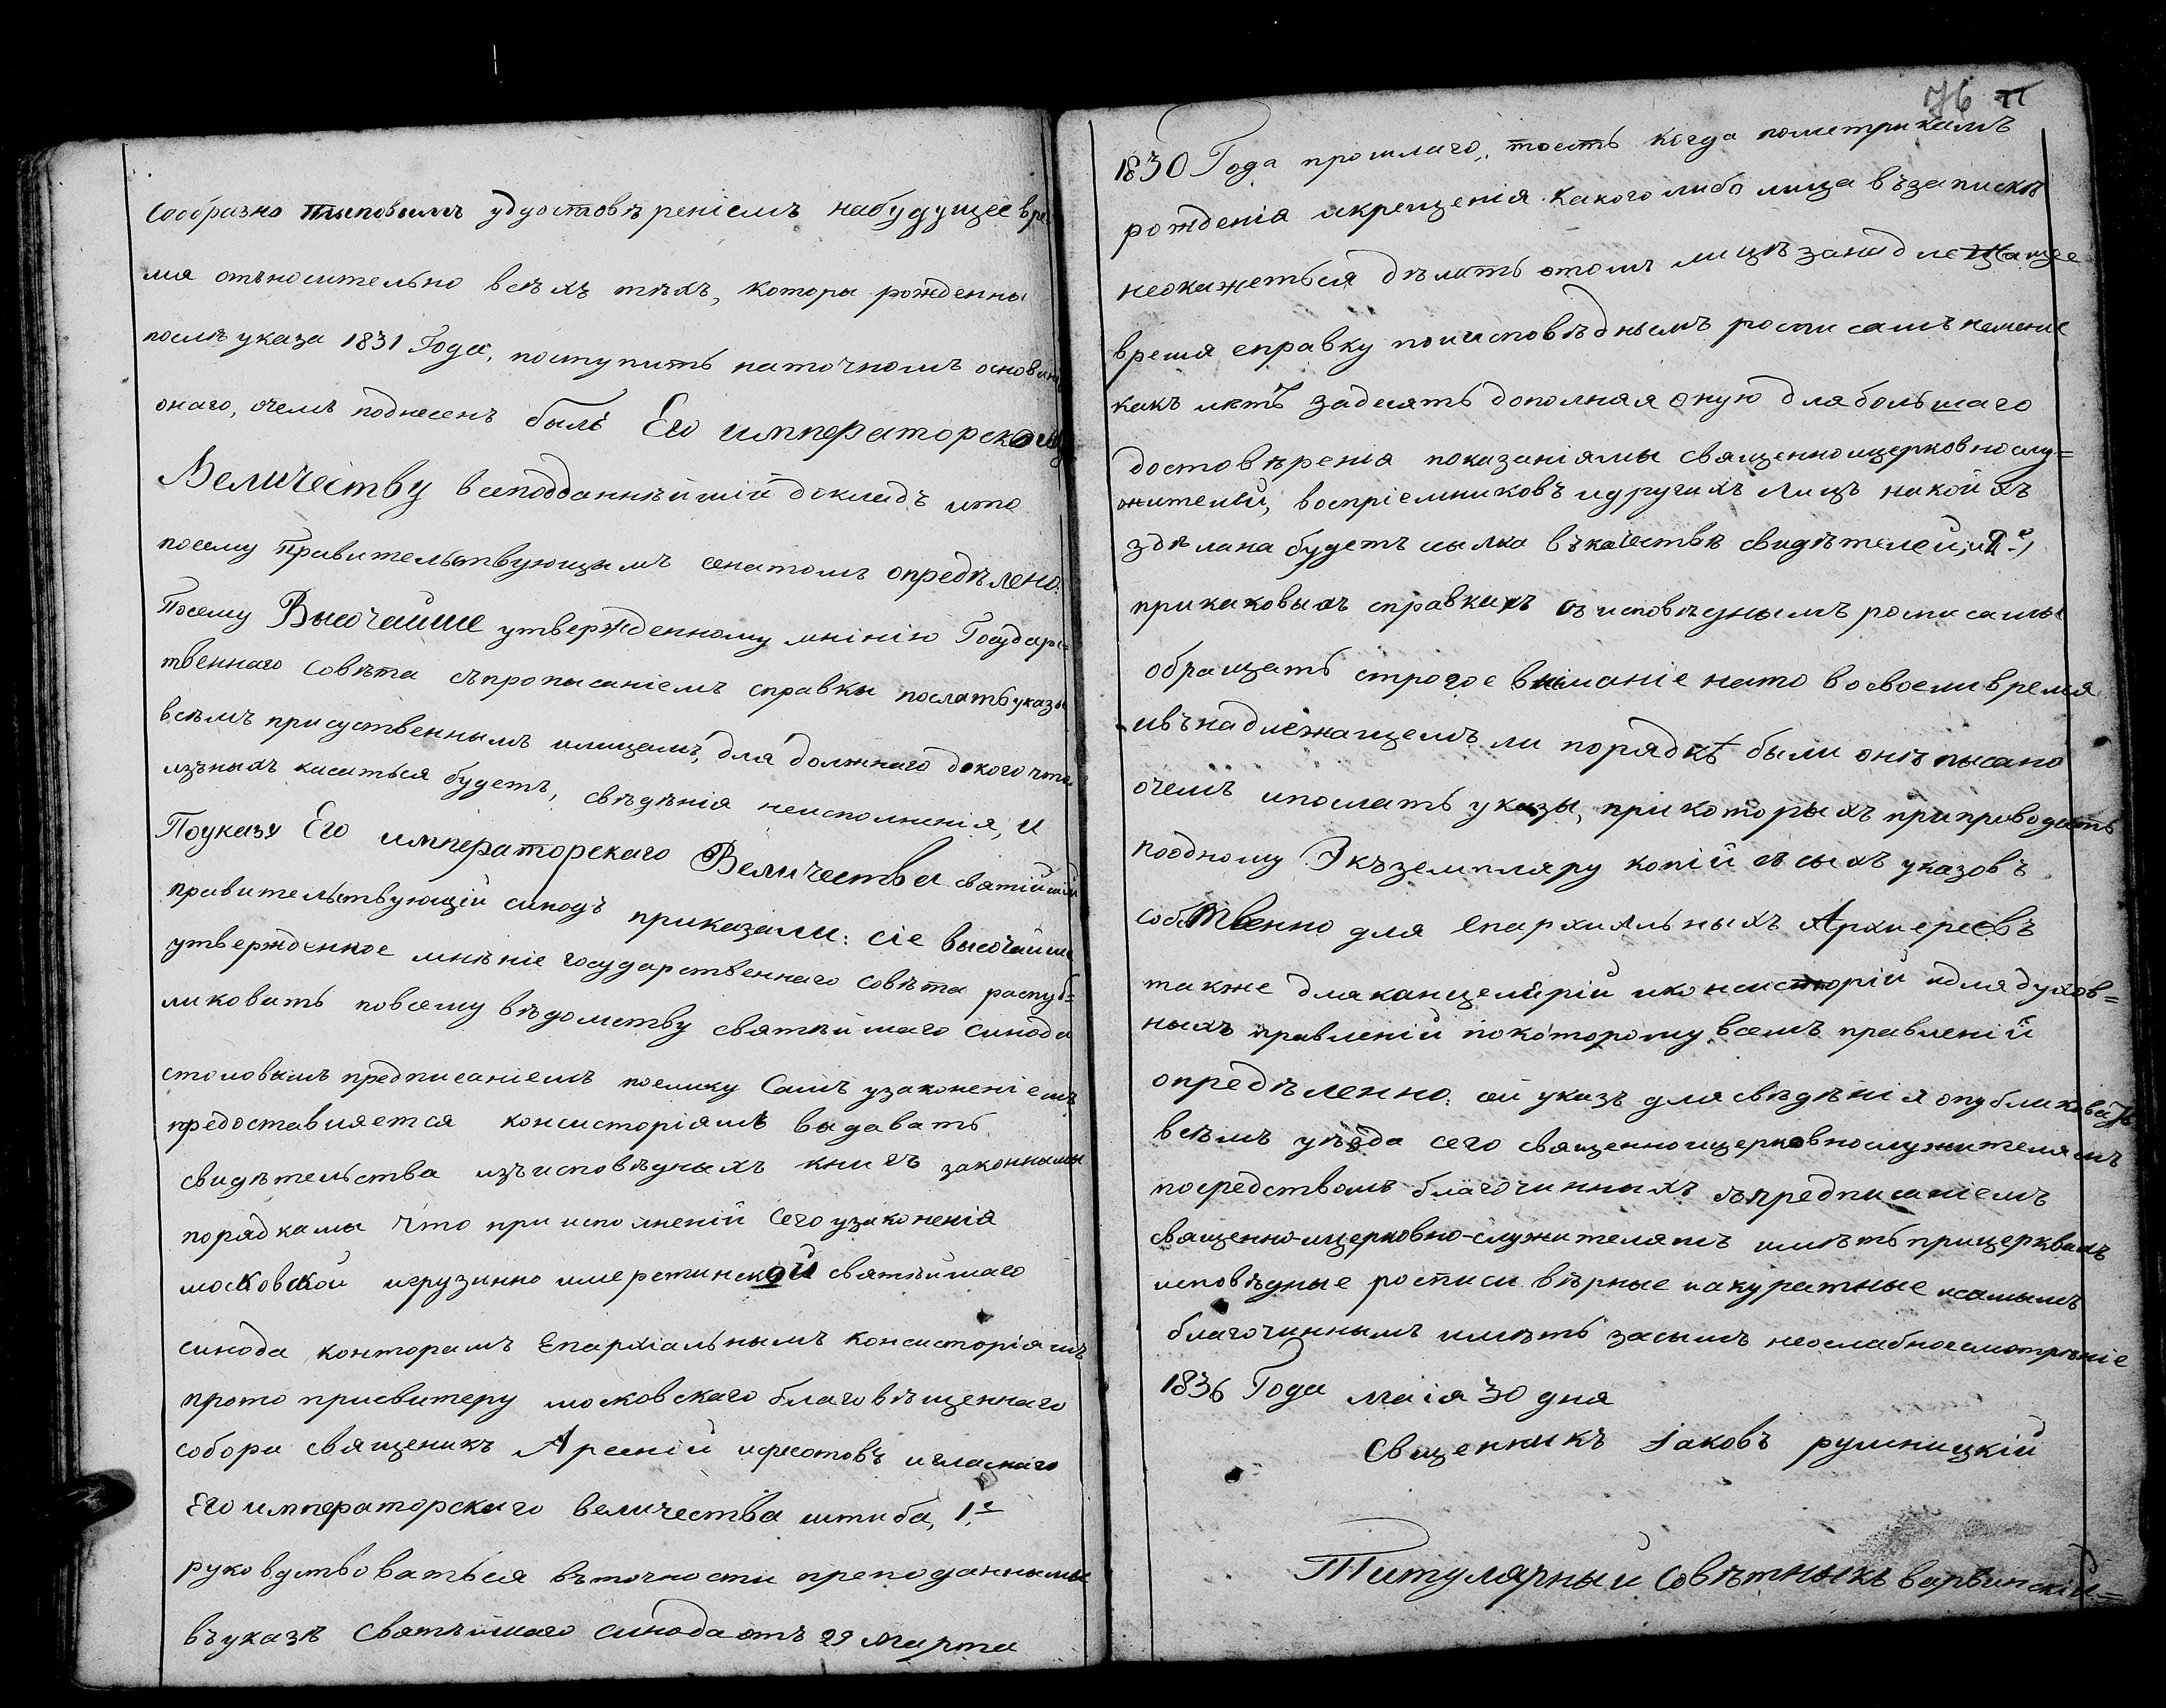 сообразно таковымъ удустовѣреніемъ набудущее вре
мя отъносительно всѣхъ тѣхъ, которы рожденны
послѣ указа 1831 Года, поступить наточномъ основан
онаго, очемъ поднесенъ былъ Его императорскому
Величеству всеподданнѣйшій докладъ ито
посему правительствующимъ сенатомъ опредѣлено:
Посему Высочайше утвержденному мнінію Государс-
твеннаго Совѣта съпрописаніемъ справки послать указы
всѣмъ присуственнымъ илицамъ, для должнаго докого что
изъныхъ каситься будетъ, свѣдѣнія неисполненія, и
Поуказу Его императорскаго Величества святійшій
правительствующій синодъ приказали: сіе высочайше
утвержденное мнѣніе государственнаго совѣта распуб=
ликовать повсему вѣдомству святѣйшаго синода
стаковымъ предписаніемъ поелику Самъ узаконеніемъ
предоставляется консисторіямъ выдавать
свидѣтельства изъисповѣдныхъ книгъ законнымы
порядкамы что при исполненій сего узаконенія
московской игрузинно имеретинской святѣйшаго
синода конторамъ Епархіальнымъ консисторіямъ
прото присвитеру московскаго благовѣщеннаго
собора священикъ Арсеній игласнаго
Его императорскаго величества штаба, 1е
руководствоваться въточности преподаннымы
въуказѣ Святѣйшаго синода отъ 29 марта
76
1830 Года прошлаго, тоесть когда пометрикамъ
рожденія икрещенія какого либо лица възапискѣ
неокажеться дѣлать отомъ лицѣ занадлежащее
время справку поисповѣднымъ росписамъ неменше
какъ лѣтъ задесять дополная оную длябольшаго
достовѣренія показаніямы священноицерковнослу=
жителей, воспріемниковъ идругихъ лицъ накойхъ
здѣлана будетъ сылка въкачествѣ свидѣтелей, и 2е,
прикаковыхъ справкахъ съисповѣднымъ росписамы
обращать строгое вниманіе нато восвоели время
ивънадлежащемъ ли порядкѣ были онѣ писано
очемъ ипослать указы, прикоторыхъ припроводить
поодному Экъземпляру копій съсыхъ указовъ
собственно для епархіяльныхъ Архиереевъ
также дляканцелярій иконсисторій идлядухов=
ныхъ правленій покоторому всемъ правленій
опредѣленно: сей указъ длясвѣдѣнія опубликовать
всѣмъ уѣзда сего священноицерковнослужителямъ
посредствомъ благочинныхъ съпредписаніемъ
священно-ицерковно-служителямъ имѣть прицерквахъ
исповѣдные росписи вѣрные иакуратные исамымъ
благочиннымъ имѣть засымъ неослабноесмотрѣніе
1836 Года маія 30 дня
Священникъ Іаковъ румницкій
Титулярный Совѣтныкъ варвинскій=